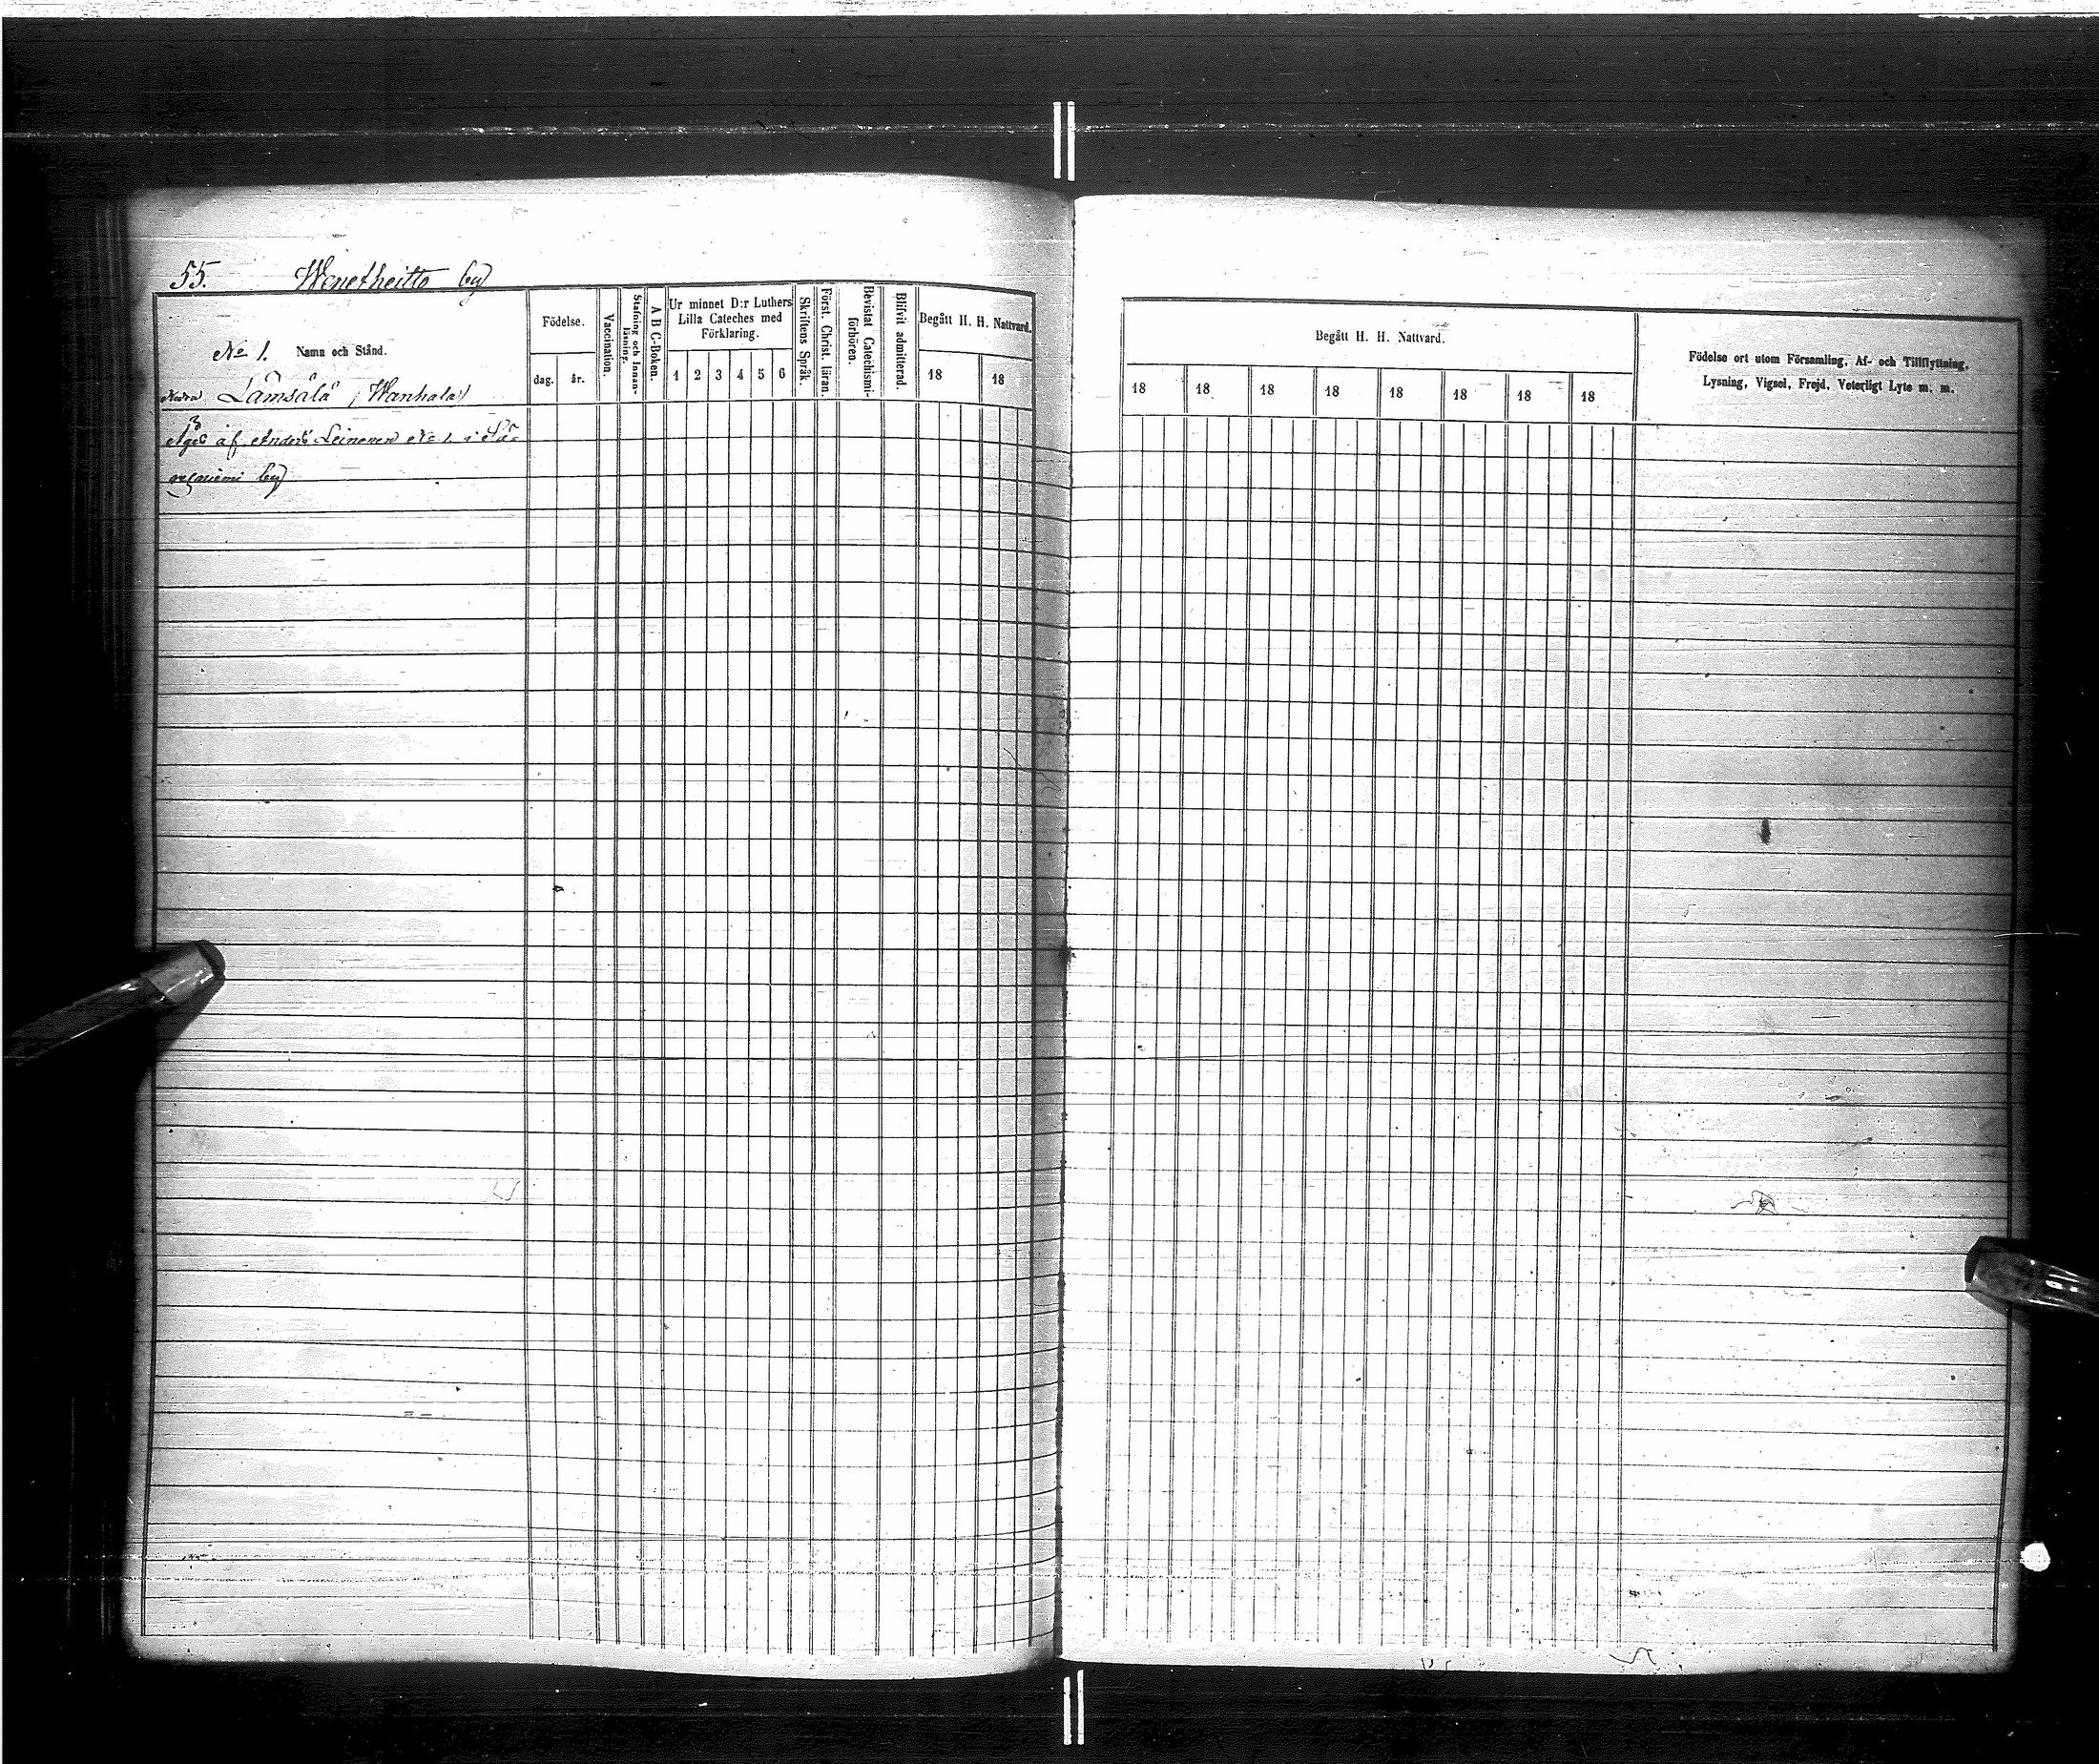 55. Wenetheitto by
No 1. Namn och Stånd.
Nedra Lämsälä /Wanhala/
Födelse.
dag. år.
Vaccination.
Stafning och Innan-
läsning.
A B C-Boken.
Ur minnet D:r Luthers
Lilla Cateches med
Förklaring.
1 2 3 4 5 6
Skriftens Språk.
Först. Christ. läran.
Bevistat Catechismi-
förhören.
Blifvit admitterad.
Begått H. H. Nattvard.
18 18
Äges af Anders Leinonen No 1. i Sä-
by
Begått H. H. Nattvard.
18 18 18 18 18 18 18 18
Födelse ort utom Församling, Af- och Tillflyttning,
Lysning, Vigsel, Frejd, Veterligt Lyte m. m.